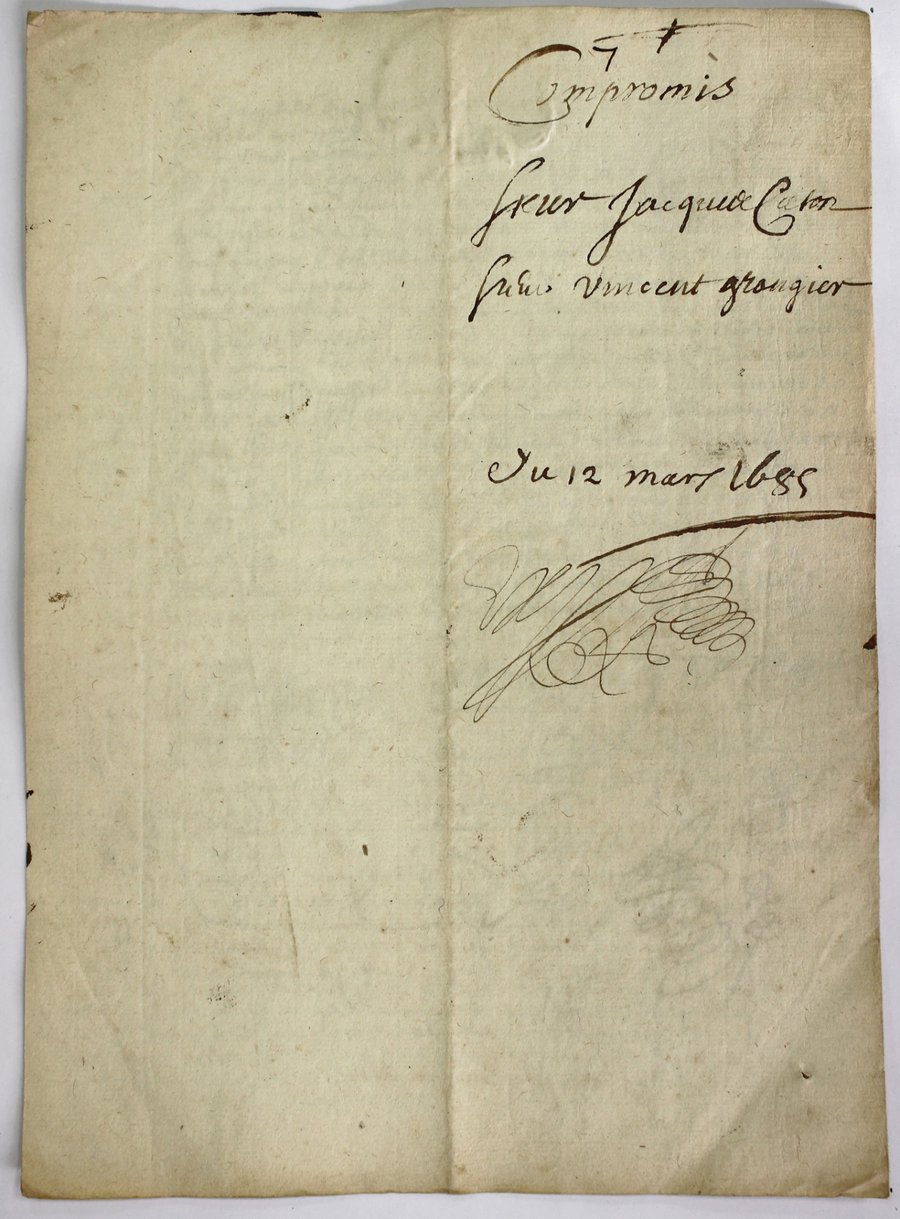 Compromis
sieur Jacque Caton
sieur vincent grangier
Du 12 mars 1685